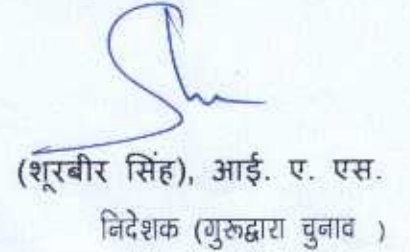 (शूरबीर सिंह), आई. ए. एस.
निदेशक (गुरूद्वारा चुनाव )